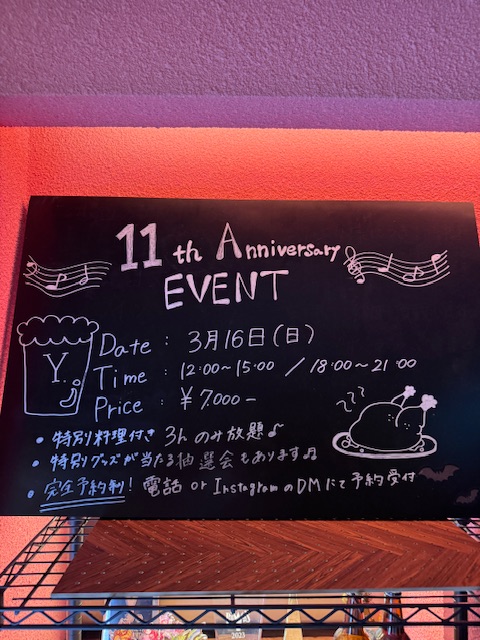 11th Anniversary
EVENT
Y.
Date : 3月16日(日)
Time : 12:00~15:00 / 18:00~21:00
Price : ¥7.000-
• 特別料理付き 3h のみ放題♪
• 特別グッズが当たる抽選会もあります♫
• 完全予約制! 電話 or InstagramのDMにて予約受付
2023